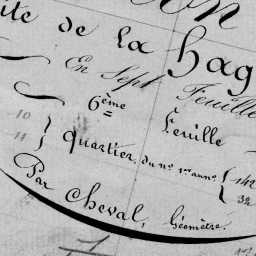 ON
ite de la Hag
En Sept Feuille
6ème Feuille
10
11
Quartier, du nº 1er au nº { 142
32
Par Cheval, Géomètre.